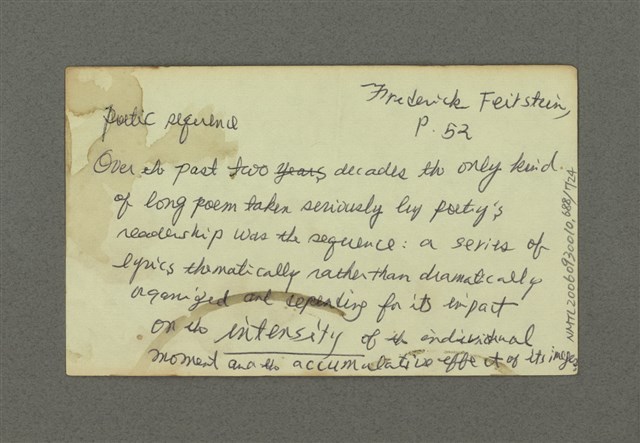 Frederick Feirstein,
p. 52
poetic sequence
Over the past two years decades the only kind
of long poem taken seriously by poetry's
readership was the sequence: a series of
lyrics thematically rather than dramatically
organized and depending for its impact
on the intensity of the individual
moment and the accumulative effect of its images
NMTL20060930010,688/1724